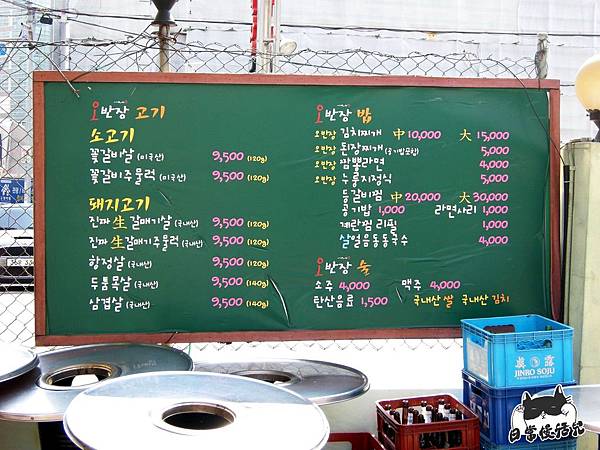 오반장 고기
소고기
꽃갈비살 (미국산) 9,500 (120g)
꽃갈비주물럭 (미국산) 9,500 (120g)
돼지고기
진짜 生 갈매기살 (국내산) 9,500 (120g)
진짜 生 갈매기주물럭 (국내산) 9,500 (120g)
항정살 (국내산) 9,500 (120g)
두툼목살 (국내산) 9,500 (140g)
삼겹살 (국내산) 9,500 (140g)
오반장 밥
오반장 김치찌개 中 10,000 大 15,000
오반장 된장찌개 (공기밥포함) 5,000
오반장 짬뽕라면 4,000
오반장 누룽지정식 5,000
등갈비찜 中 20,000 大 30,000
공기밥 1,000 라면사리 1,000
계란찜 리필 1,000
살얼음동동국수 4,000
오반장 술
소주 4,000 맥주 4,000
탄산음료 1,500 국내산 쌀 국내산 김치
眞露
JINRO SOJU
日常慢活記